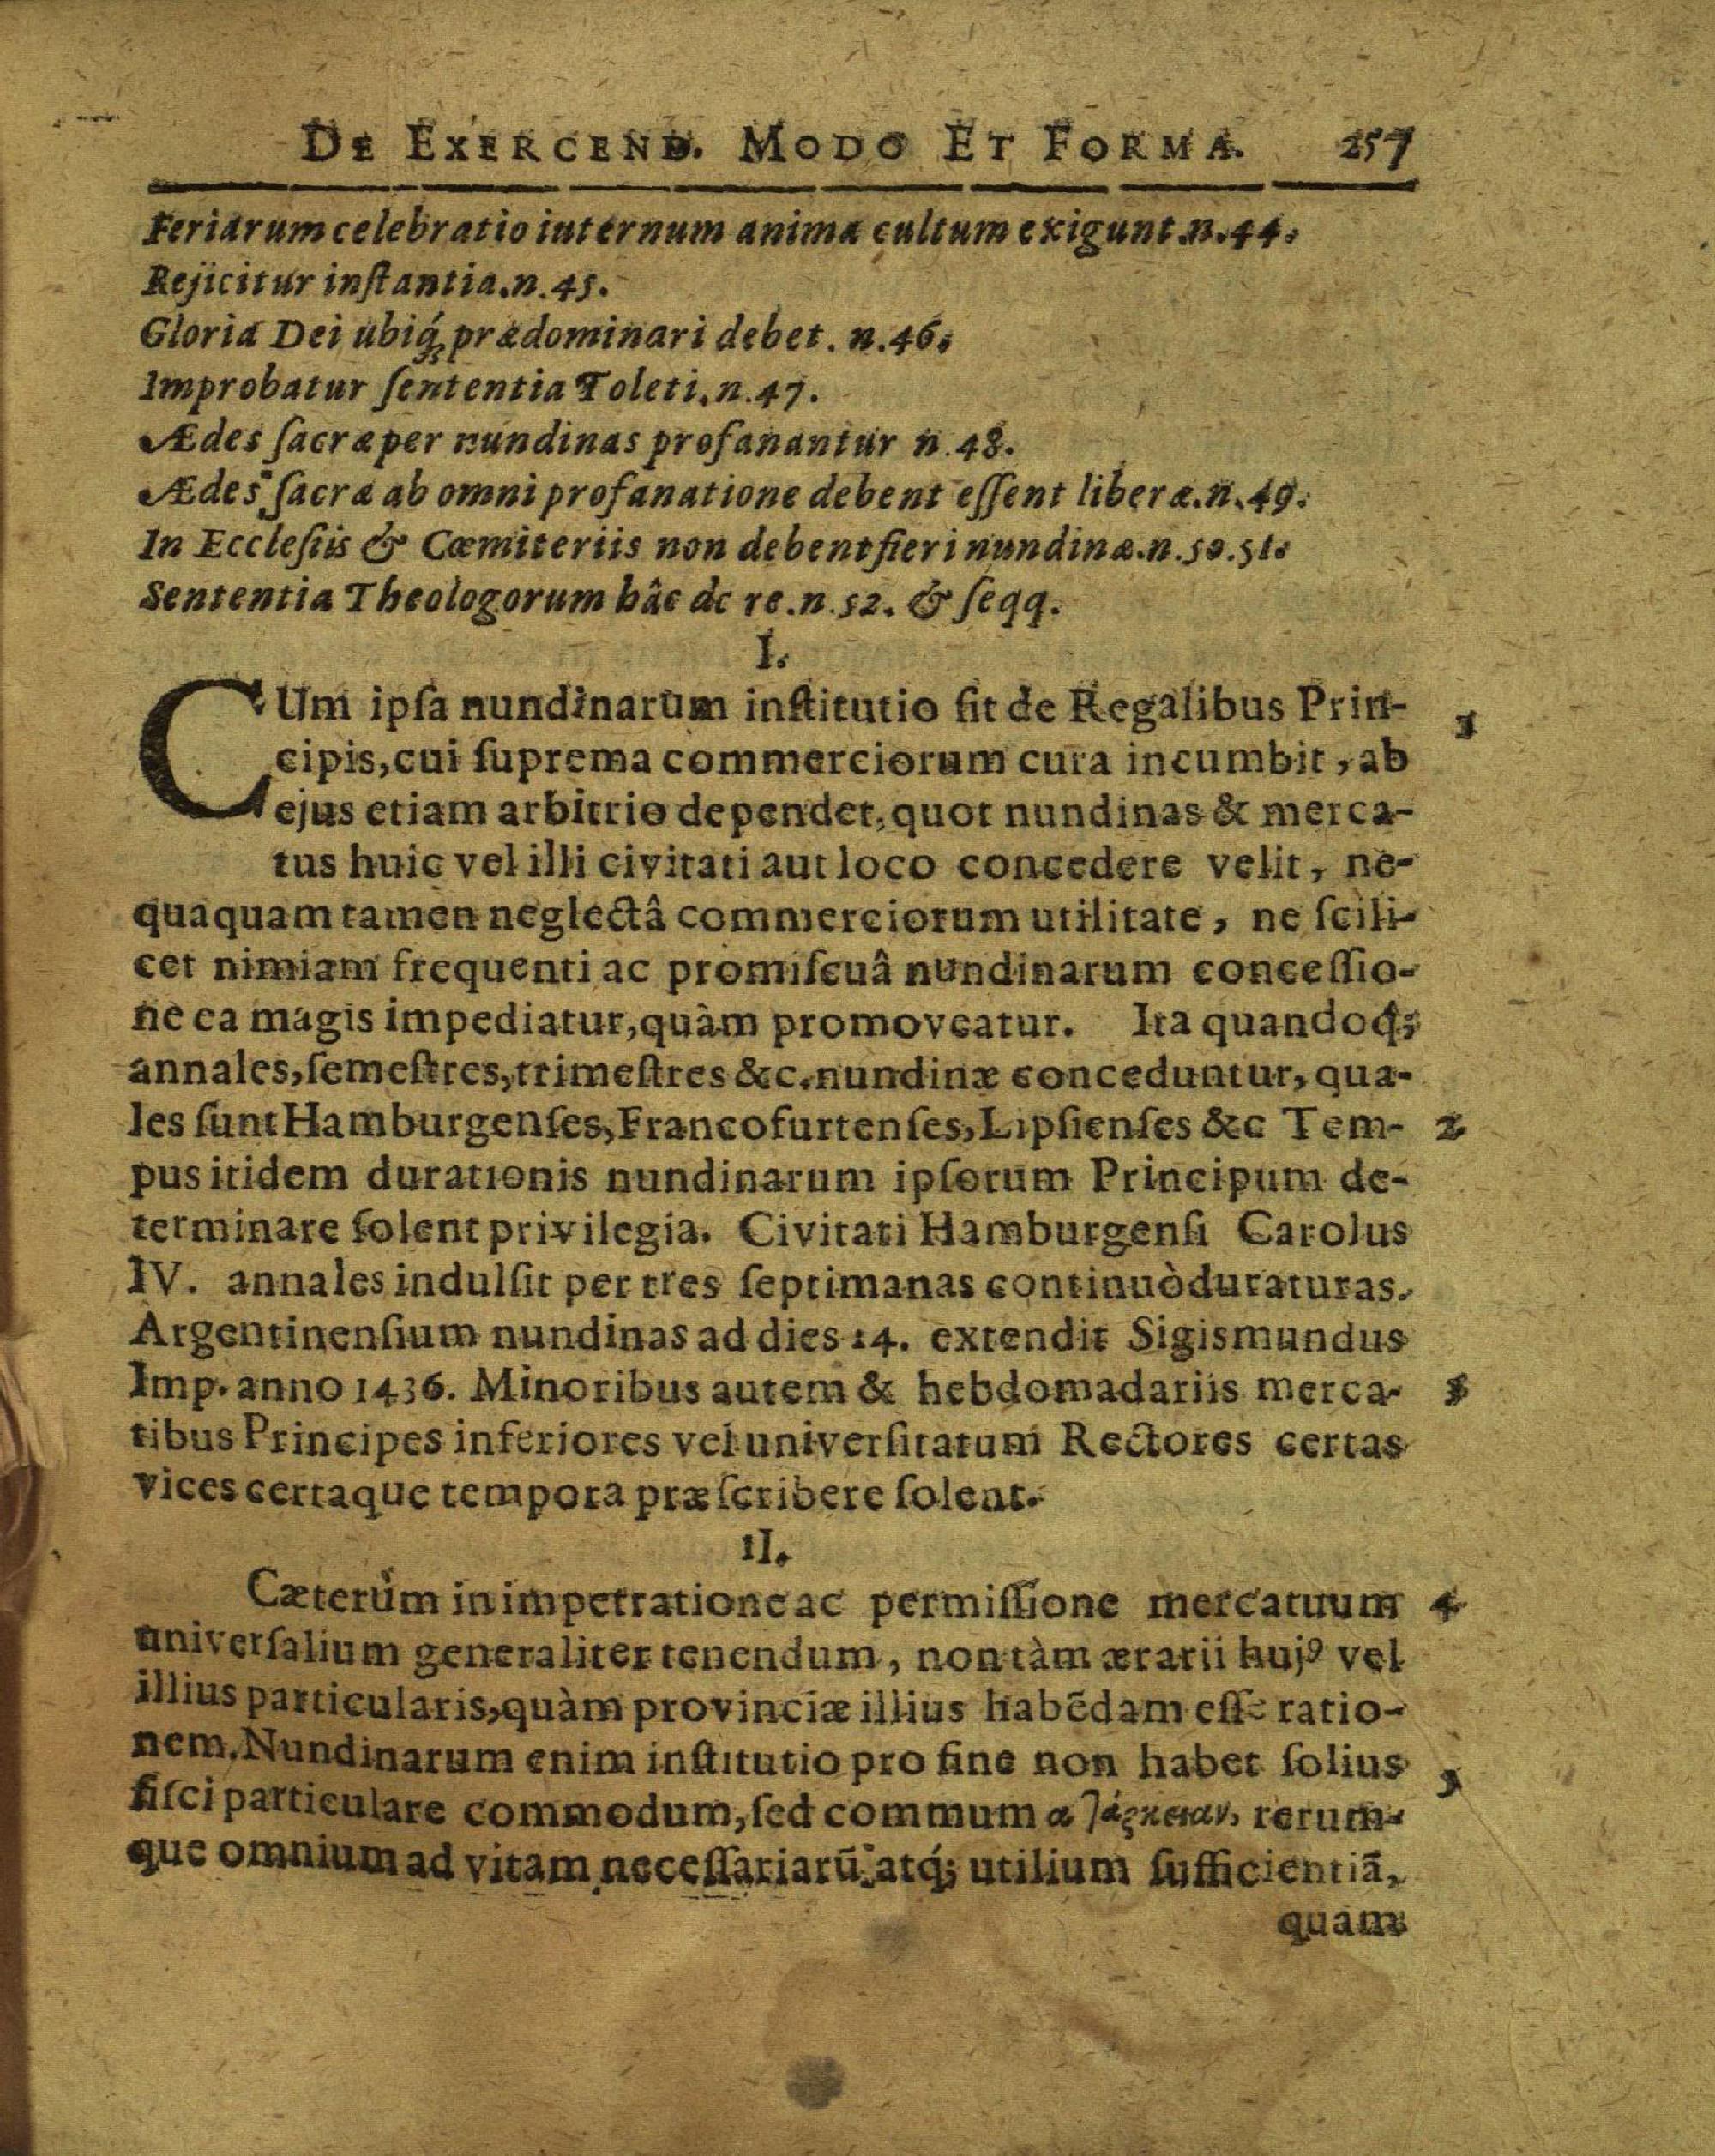 DE EXERCEND. MODO ET FORMA. 257
Feriarum celebratio internum anima cultum exigunt.n.44.
Rejicitur inſtantia.n.45.
Gloria Dei ubiq́; prædominari debet. n.46.
Improbatur ſententia Toleti.n.47.
Ædes ſacræ per nundinas profanantur n.48.
Ædes ſacræ ab omni profanatione debent eſſent liberæ.n.49.
In Eccleſiis & Cœmiteriis non debent fieri nundinæ.n.50.51.
Sententia Theologorum hâc de re.n.52. & ſeqq.
I.
CUm ipſa nundinarum inſtitutio ſit de Regalibus Prin- 1
cipis, cui ſuprema commerciorum cura incumbit, ab
ejus etiam arbitrio dependet, quot nundinas & merca-
tus huic vel illi civitati aut loco concedere velit, ne-
quaquam tamen neglectâ commerciorum utilitate, ne ſcili-
cet nimiam frequenti ac promiſcuâ nundinarum conceſſio-
ne ea magis impediatur, quàm promoveatur. Ita quandoq́;
annales, ſemeſtres, trimeſtres &c. nundinæ conceduntur, qua-
les ſunt Hamburgenſes, Francofurtenſes, Lipſienſes &c Tem- 2
pus itidem durationis nundinarum ipſorum Principum de-
terminare ſolent privilegia. Civitati Hamburgenſi Carolus
IV. annales indulſit per tres ſeptimanas continuò duraturas.
Argentinenſium nundinas ad dies 14. extendit Sigismundus
Imp. anno 1436. Minoribus autem & hebdomadariis merca- 3
tibus Principes inferiores vel univerſitatum Rectores certas
vices certaque tempora præſcribere ſolent.
II.
Cæterùm in impetratione ac permiſſione mercatuum 4
univerſalium generaliter tenendum, non tàm ærarii huj⁹ vel
illius particularis, quàm provinciæ illius habẽdam eſſe ratio-
nem. Nundinarum enim inſtitutio pro fine non habet ſolius 5
fiſci particulare commodum, ſed commum αὐτάρκειαν, rerum-
que omnium ad vitam neceſſariarũ atq́; utilium ſufficientiã,
quam